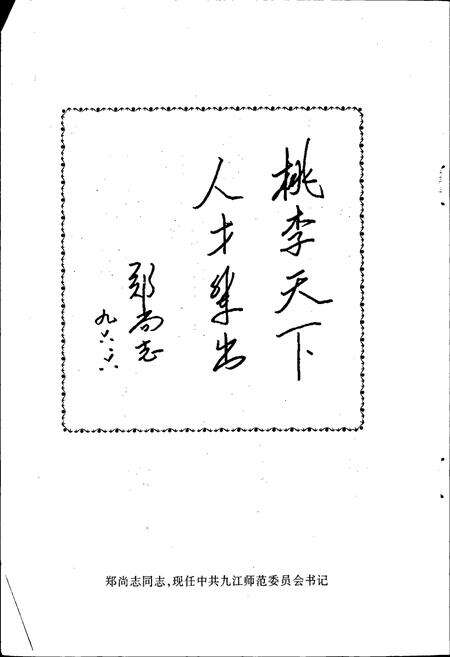 桃李天下
人才辈出
郑尚志
九六.六
郑尚志同志,现任中共九江师范委员会书记